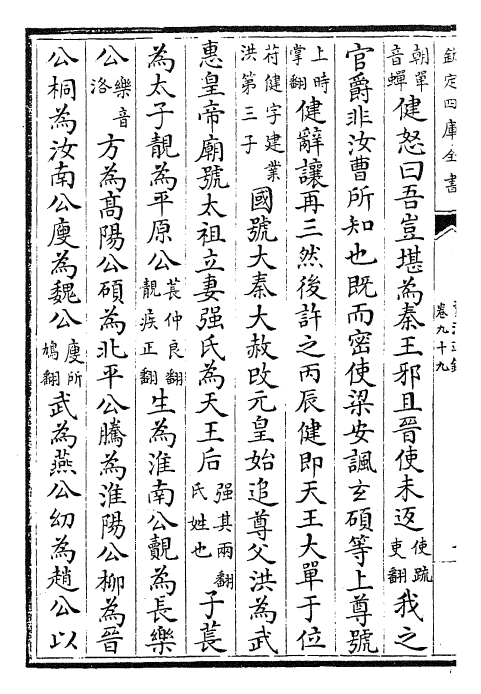 欽定四庫全書
卷九十九
朝單
音蟬
健怒曰吾豈堪為秦王邪且晉使未返
使疏
吏翻
我之
官爵非汝曹所知也既而密使梁安諷玄碩等上尊號
上時
掌翻
健辭讓再三然後許之丙辰健即天王大單于位
苻健字建業
洪第三子
國號大秦大赦改元皇始追尊父洪為武
惠皇帝廟號太祖立妻强氏為天王后
强其兩翻
氏姓也
子萇
為太子靚為平原公
萇仲良翻
靚疾正翻
生為淮南公覿為長樂
公
樂音
洛
方為髙陽公碩為北平公騰為淮陽公柳為晉
公桐為汝南公廋為魏公
廋所
鳩翻
武為燕公幼為趙公以